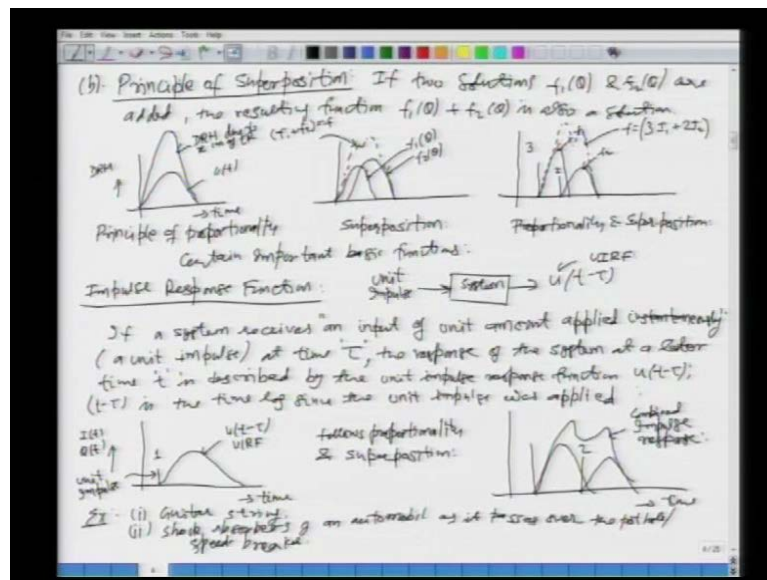 File Edit View Insert Actions Tools Help
(b). Principle of Superposition: If two solutions f₁(Q) & f₂(Q) are
added, the resulting function f₁(Q) + f₂(Q) is also a solution.
DRH
DRH due to
u(t)
→ time
f₁(Q)
f₂(Q)
3
2
f=(3I₁+2I₂)
Principle of proportionality
Superposition:
Proportionality & Superposition:
Certain important basic functions:
Impulse Response Function:
unit impulse → System → u(t-τ) UIRF
If a system receives an input of unit amount applied instantaneously
(a unit impulse) at time 'τ', the response of the system at a later
time 't' is described by the unit impulse response function u(t-τ);
(t-τ) is the time lag since the unit impulse was applied
I(t)
Q(t)
unit impulse
1
u(t-τ)
UIRF
→ time
follows proportionality
& superposition:
2
Combined
impulse
response:
→ time
Ex: (i) Guitar string.
(ii) Shock absorbers of an automobil as it passes over the pot hole/
speed breaker.
6/20
6